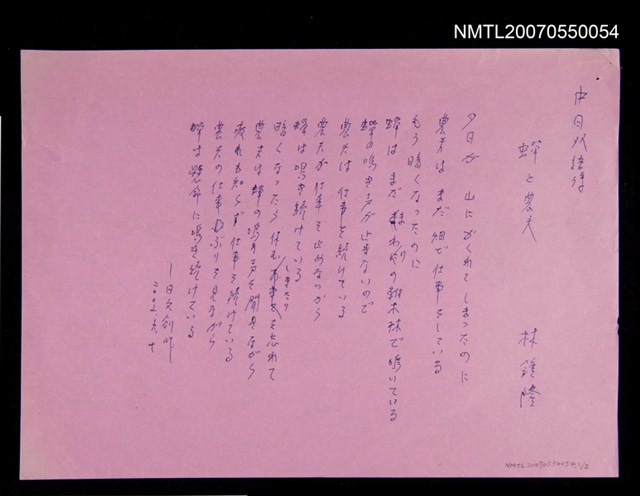 NMTL20070550054
中日双語詩
蟬と農夫
林鍾隆
夕日が 山にかくれてしまったのに
農夫は まだ畑で仕事をしている
もう暗くなったのに
蟬は まだ まわりの雑木林で鳴いている
蟬の鳴き声が止まないので
農夫は 仕事を続けている
農夫が仕事を止めないから
蟬は鳴き続けている
暗くなったら休む しきたりを忘れて
農夫は 蟬の鳴き声を聞きながら
疲れも知らず仕事を続けている
農夫の仕事ぶりを見ながら
蟬は懸命に鳴き続けている
—日文創作
NMTL20070550054,1/2